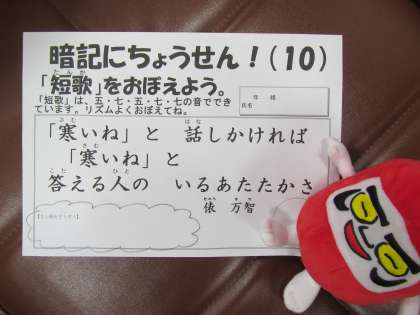 暗記にちょうせん！（10）
「短歌」をおぼえよう。
「短歌」は、五・七・五・七・七の音ででき
ています。リズムよくおぼえてね。
氏名
「寒いね」と 話しかければ
「寒いね」と
答える人の いるあたたかさ
俵 万智